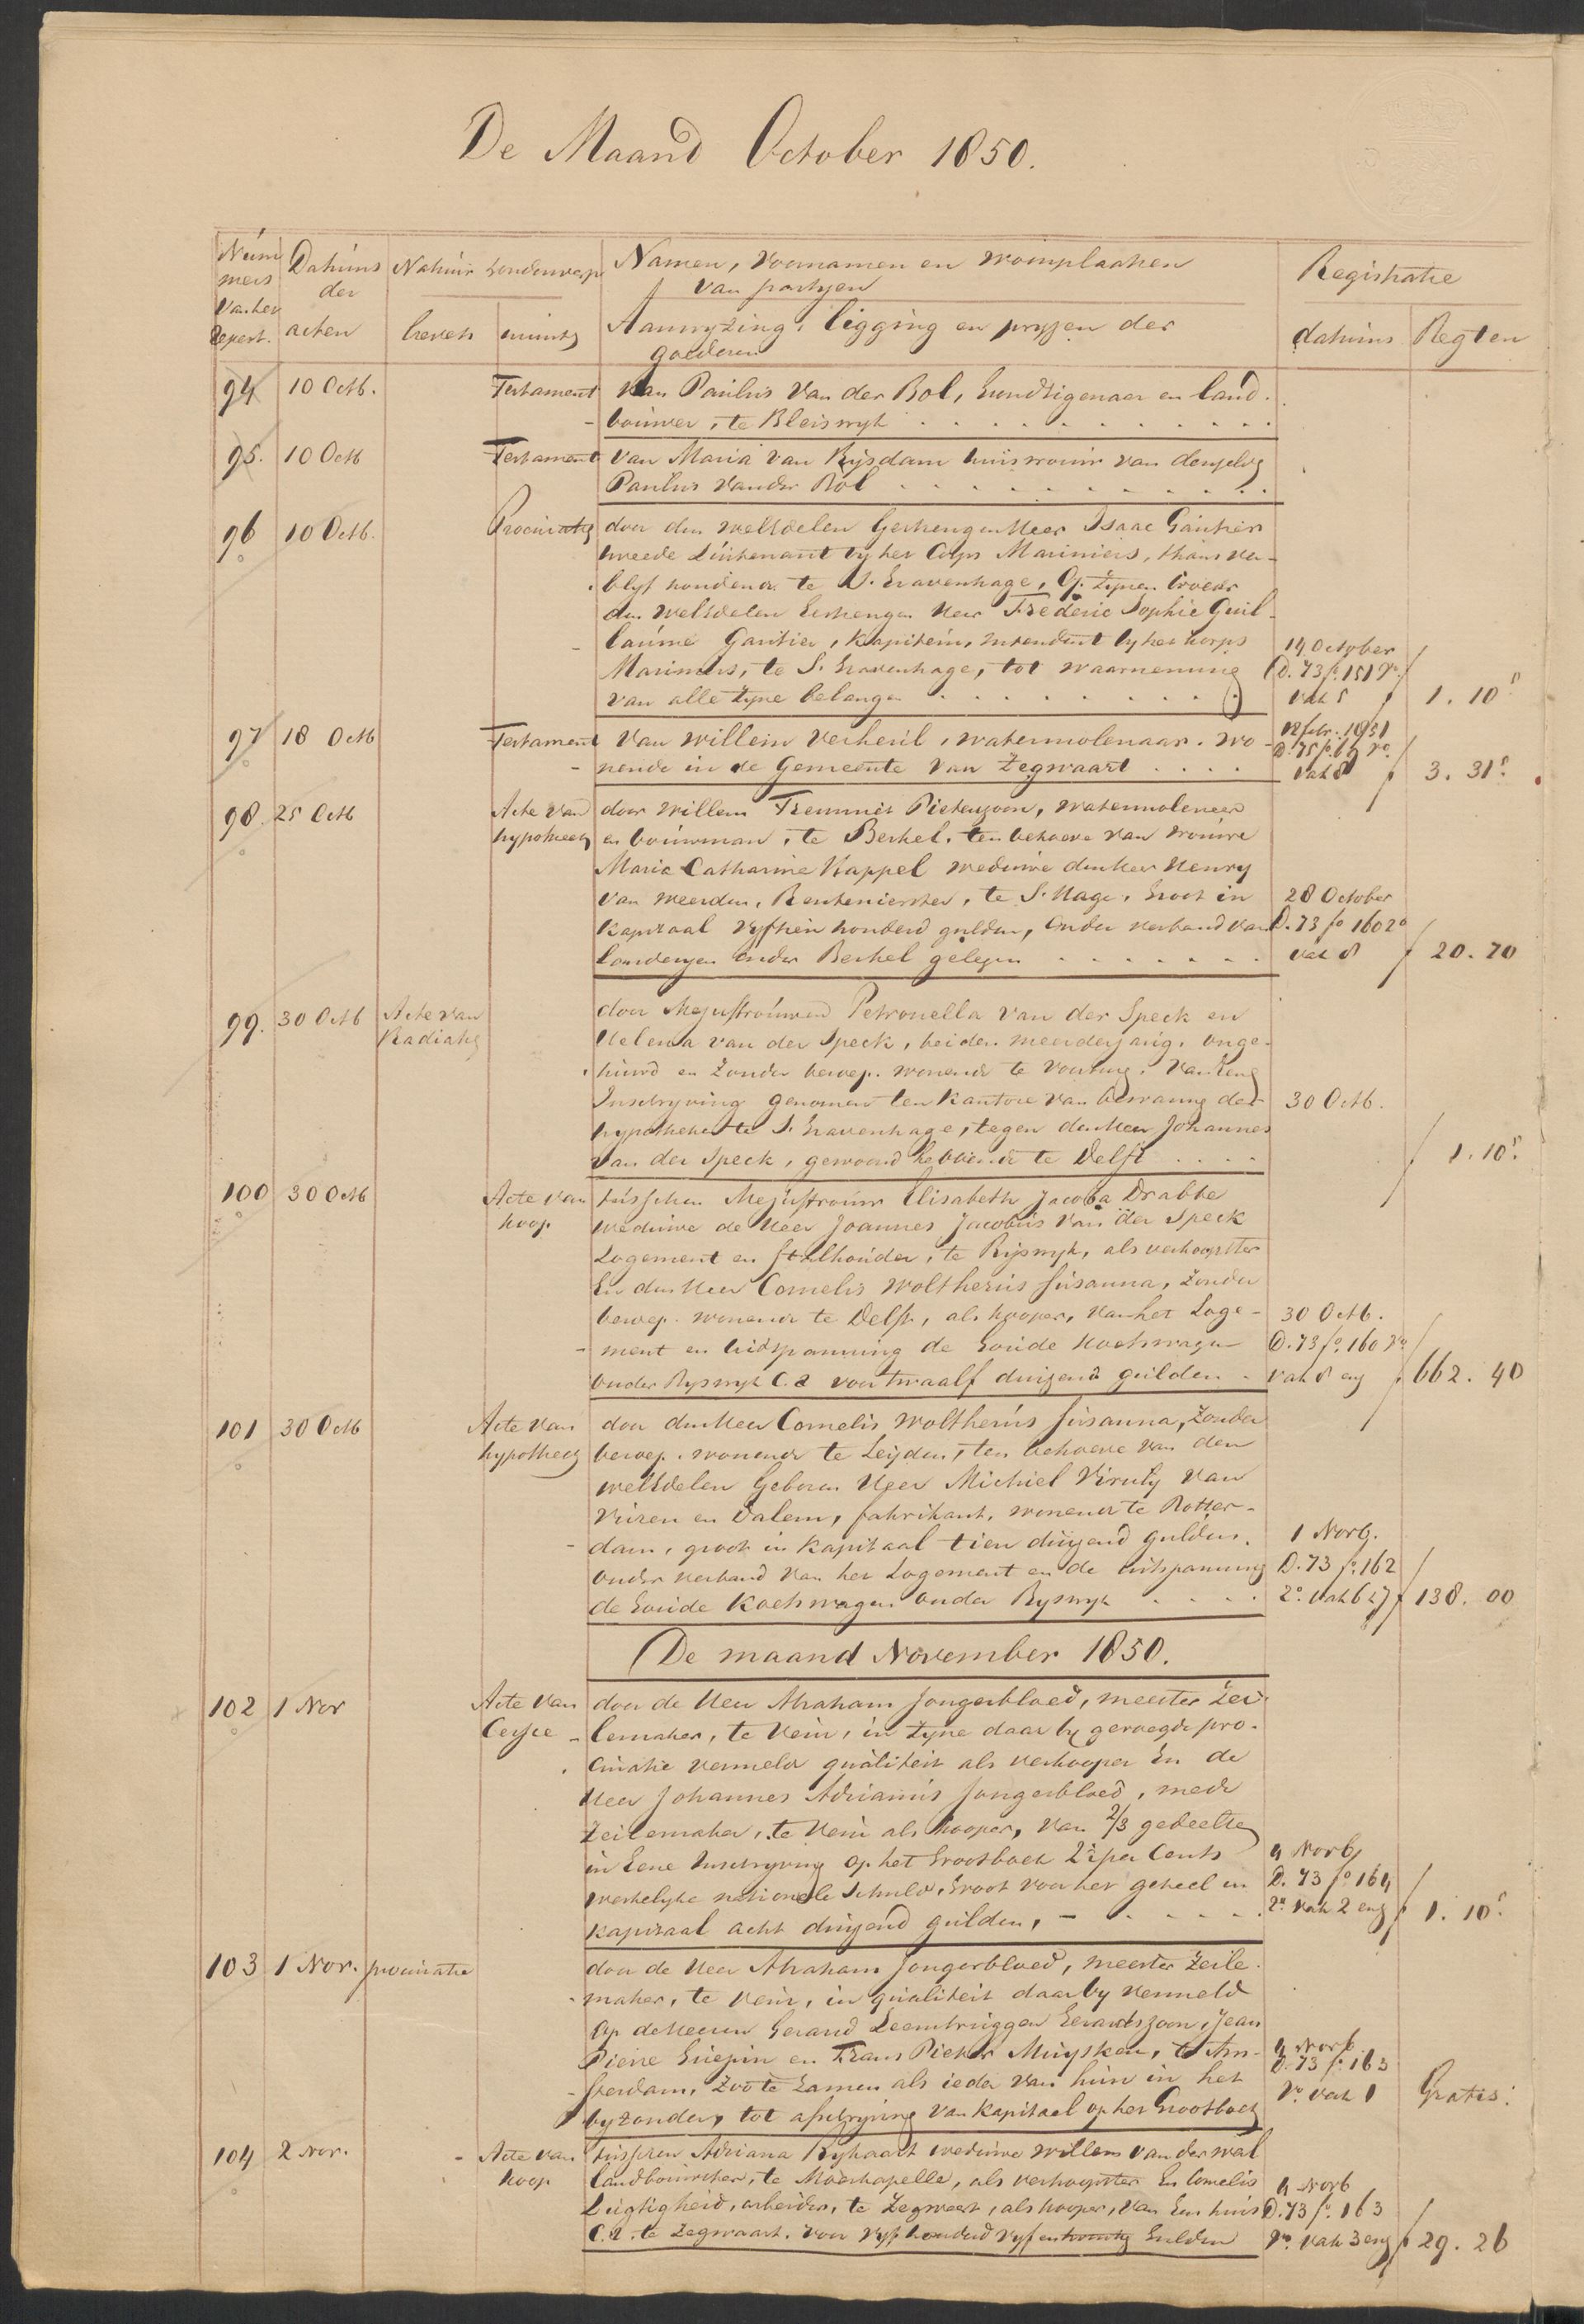 De Maand October 1850.
Num
mers
van het
Repert.
Datums
der
acten
Natuur
brevets
minuts
Namen, voornamen en woonplaatsen
van partyen
Aanwyzing, ligging en pryzen der
goederen
Registratie
datums Regten
94 10 Octb. Testament van Paulus van der Bol, Grondeigenaar en land-
bouwer, te Bleiswyk
95. 10 Octb Testament van Maria van Rijsdam huisvrouw van denzelve
Paulus van der Bol
96 10 Octb. Procuratie door den WelEdelen Gestrengen Heer Isaac Gautier
tweede Luitenant by het Corps Mariniers, thans ver-
blyf houdende te S. Gravenhage, Op zynen broeder
den WelEdelen Gestrengen Heer Frederic Sophie Guil-
laume Gautier, Kapitein, Intendent by het korps
Mariniers, te S. Gravenhage, tot waarneming
van alle zyne belangen
14 October
D. 73 fo. 151 vo.
vak 5 f 1. 10 5
97 18 Octb Testament van Willem Verheul, watermolenaar. wo-
nende in de Gemeente van Zegwaart
12 febr. 1851
D. 75 fo. 67 vo
vak 8 f 3. 31 5
98. 25 Octb Acte van
hypotheek
door Willem Pieterzoon, watermolenaar
en bouwman, te Berkel, ten behoeve van vrouwe
Maria Catharina Kappel weduwe den Heer Henry
van Weerden, Rentenierster, te S. Hage, Groot in
kapitaal vyftien honderd gulden, onder verband van
landeryen onder Berkel gelegen
28 October
D. 73 fo 160 ro
vak 8 f 20. 70
99. 30 Octb Acte van
Radiatie
door Mejuffrouwen Petronella van der Speck en
Helena van der Speck, beiden meerderjarig, onge-
huwd en zonder beroep. wonende te Voorburg, van eene
Inschryving genomen ten kantore van bewaring der
hypotheken te S. Gravenhage, tegen den Heer Johannes
van der Speck, gewoond hebbende te Delft
30 Octb.
f 1. 10 5
100 30 Octb Acte van
koop
tusschen Mejuffrouw Elisabeth Jacoba Drabbe
weduwe de Heer Joannes Jacobus van der Speck
Logement en Stalhouder, te Rijswyk, als verkoopster
En den Heer Cornelis Woltherus Susanna, Zonder
beroep. wonende te Delft, als kooper, van het Loge-
ment en uitspanning de Goude Koetswagen
onder Ryswyk C.a voor twaalf duizend gulden
30 Octb.
D. 73 fo. 160 vo
vak 8 env f 662. 40
101 30 Octb Acte van
hypotheek
door den Heer Cornelis Woltherus Susanna, Zonder
beroep. wonende te Leyden, ten behoeve van den
WelEdelen Geboren Heer Michiel Viruly van
Vuren en Dalem, fabrikant, wonende te Rotter-
dam, groot in kapitaal tien duizend gulden.
onder verband van het Logement en de uitspanning
de Goude Koetswagen onder Ryswyk
1 Novb.
D. 73 fo. 162
ro. vak 6 &7 f 138. 00
De maand November 1850.
102 1 Nov Acte van
Cessie
door de Heer Abraham Jongerbloed, meester Zei-
lemaker, te Veur, in zyne daar by gevoegde pro-
curatie vermeld qualiteit als verkooper En de
Heer Johannes Adrianus Jongerbloed, mede
Zeilemaker, te Veur als kooper, van 2/3 gedeelte
in Eene Inschryving op het Grootboek 2½ per Cents
werkelyke nationale schuld, Groot voor het geheel in
kapitaal acht duizend gulden,
4 Novb
D. 73 fo. 164
ro vak 2 env f 1. 10 5
103 1 Nov. procuratie door de Heer Abraham Jongerbloed, meester Zeile-
maker, te Veur, in qualiteit daar by vermeld
Op de Heeren Gerard Leembruggen Gerardszoon, Jean
Pierre Guepin en Frans Pieter Muysken, te Am-
sterdam, zoo te zamen als ieder van hun in het
byzonder, tot afschryving van kapitaal op het Grootboek
4 Novb
D. 73 fo. 163
vo. vak 1 Gratis.
104 2 Nov. Acte van
koop
tusschen Adriana Ryhaart weduwe Willem van der Wal
landbouwster, te Moerkapelle, als verkoopster En Cornelis
Lugtigheid, arbeider, te Zegwaart, als kooper, van Een huis
C.a. te Zegwaart. voor vyf honderd vyf en twintig Gulden
4 Novb
D. 73 fo. 163
vo. vak 3 env f 29. 26